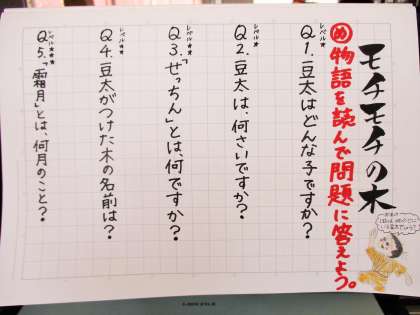 モチモチの木
め 物語を読んで問題に答えよう。
レベル★
Q1.豆太はどんな子ですか?
レベル★
Q2.豆太は、何さいですか?
レベル★★
Q3.「せっちん」とは、何ですか?
レベル★★
Q4.豆太がつけた木の名前は?
レベル★★★
Q5.「霜月」とは、何月のこと?